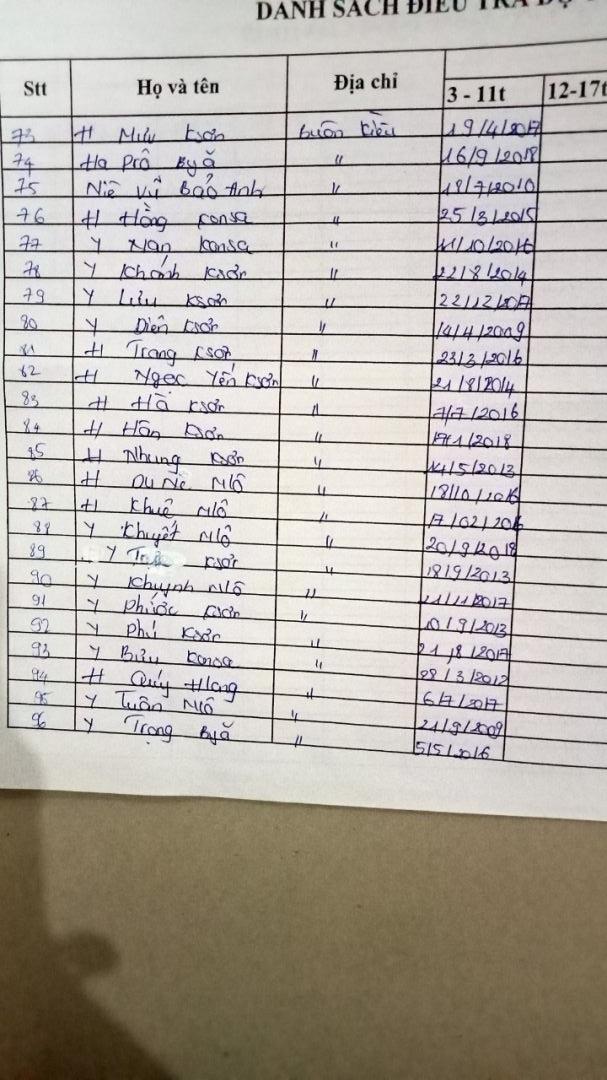 DANH SÁCH ĐIỀU TRA
Stt Họ và tên Địa chỉ 3 - 11t 12-17t
73 H Mưu Ksơn buôn Kiều 19/4/2017
74 Ha Prô Byă " 16/9/2018
75 Niê Vũ Bảo Anh " 18/7/2010
76 H Hồng Konsa " 25/3/2015
77 Y Nan Konsa " 11/10/2016
78 Y Khánh Ksơn " 22/8/2014
79 Y Lưu Ksơn " 22/12/2017
80 Y Diên Ksơn " 14/4/2009
81 H Trang Ksơn " 23/3/2016
82 H Ngọc Yến Ksơn " 21/8/2014
83 H Hà Ksơn " 7/7/2016
84 H Hân Ksơn " 17/1/2018
85 H Nhung Ksơn " 14/5/2013
86 H Du Nie Mlô " 18/10/2016
87 H Khuê Mlô " 17/02/2016
88 Y Khuyết Mlô " 20/9/2018
89 Y Ksơn " 18/9/2013
90 Y Khuynh Mlô " 11/11/2017
91 Y Phước Ksơn " 10/9/2013
92 Y Phú Ksơn " 21/8/2017
93 Y Bửu Konsa " 28/3/2012
94 H Quý Hlong " 6/7/2017
95 Y Tuân Mlô " 21/9/2009
96 Y Trọng Byă " 5/5/2016